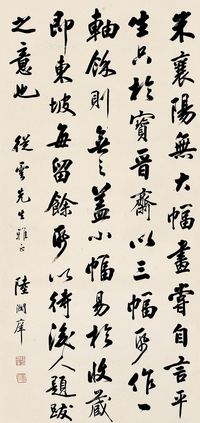 米襄陽無大幅畫嘗自言平
生只於寶晉齋以三幅所作一
軸餘則無之蓋小幅易於收藏
即東坡每留餘所以待後人題跋
之意也
從雲先生雅正
陸潤庠